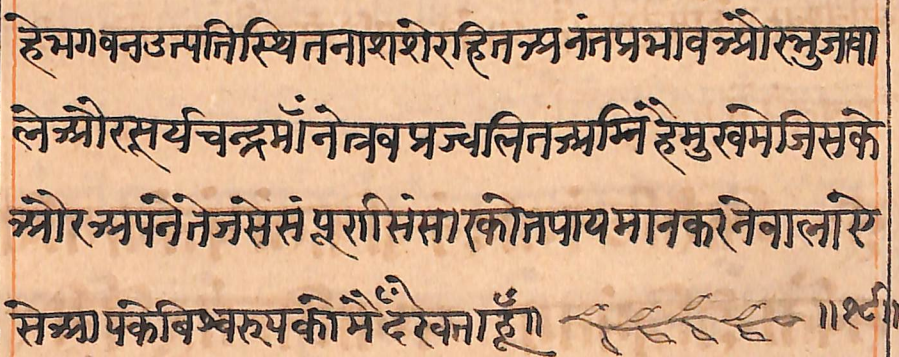 हेभगवनउत्पतिस्थितनाशशेरहितअनंतप्रभावऔरभुजवा
लेऔरसूर्यचन्द्रमाँनेत्रवप्रज्वलितअग्निंहैमुखमेजिसके
औरअपनेतेजसेसंपूर्णसिंसारकोतपायमानकरनेवालाऐ
सेआपकेविश्वरूपकोमैंदेखताहूँ॥ ॥१९॥